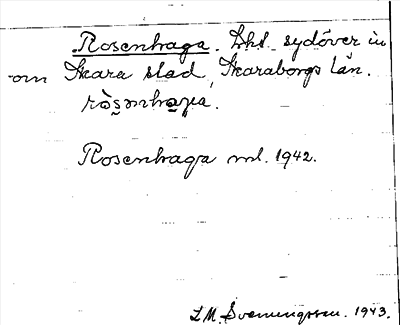 Rosenhaga. Lhl. sydöver in
om Skara stad, Skaraborgs län.
Rosenhaga ml. 1942.
L M. Svenungsson. 1943.